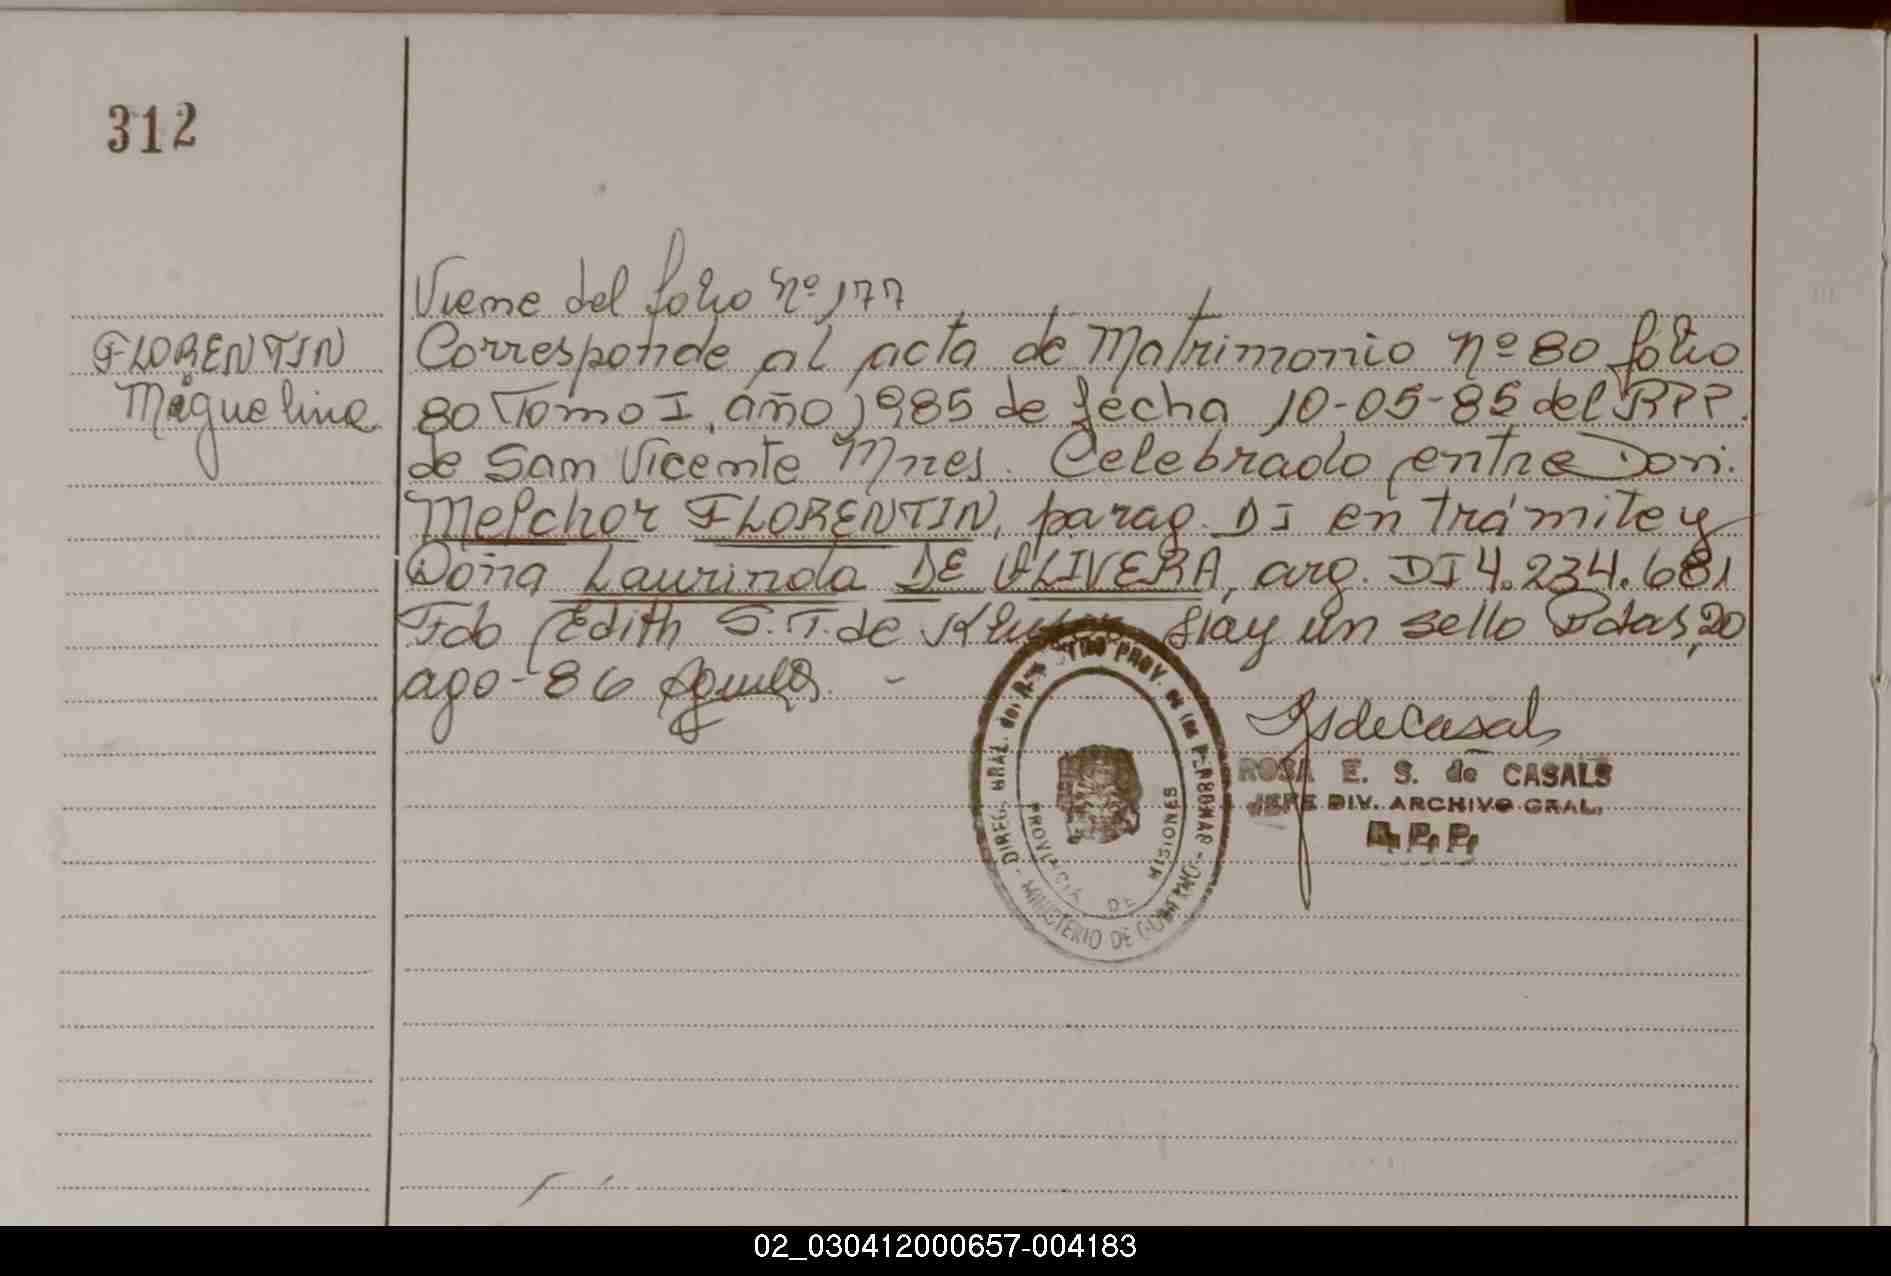 312
Viene del folio nº 177
FLORENTIN
Miguelina
Corresponde al acta de Matrimonio nº 80 folio
80 Tomo I, año 1985 de fecha 10-05-85 del RPP.
de San Vicente Mnes. Celebrado entre Don.
Melchor FLORENTIN, parag. DI en trámite y
Doña Laurinda DE OLIVERA, arg. DI 4.234.681
Fdo Edith S. T. de Hay un sello Pdas, 20
ago-86
RsdeCasals
ROSA E. S. de CASALS
JEFE DIV. ARCHIVO GRAL.
R. P. P.
DIREC. GRAL. del PROV. de las PERSONAS
MINISTERIO DE GOBIERNO
PROVINCIA DE MISIONES
02_030412000657-004183